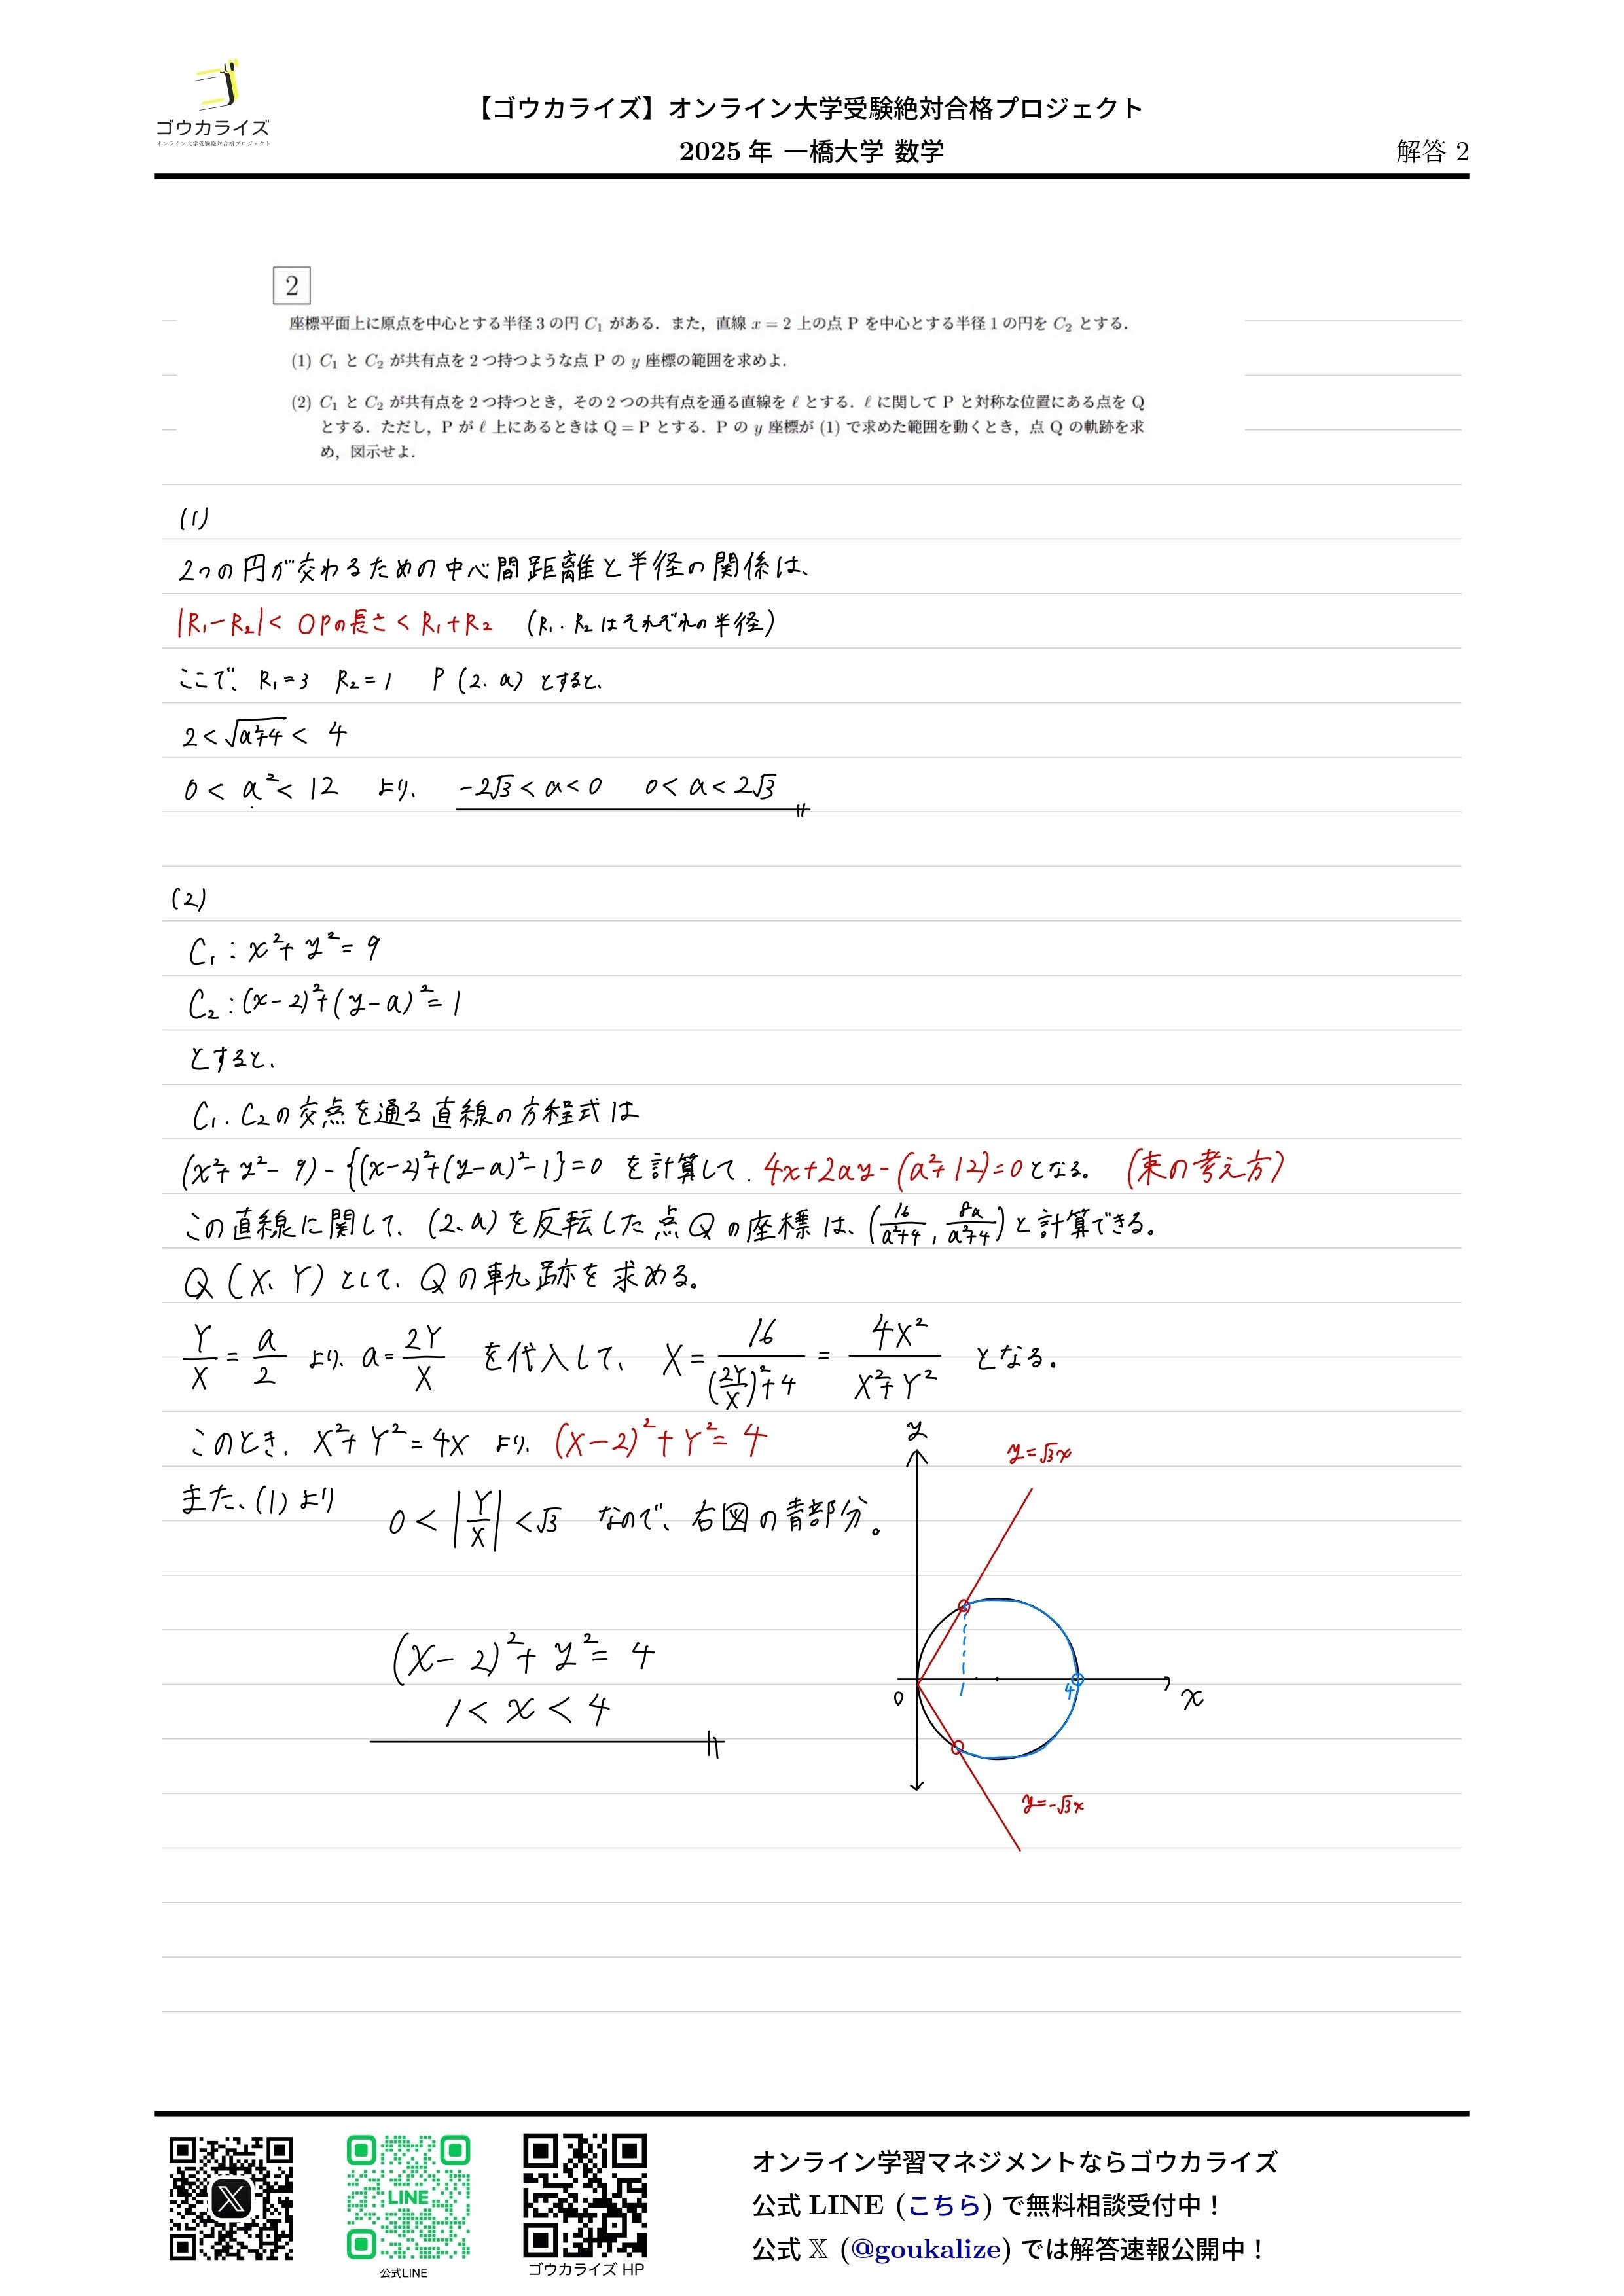 ゴウカライズ
オンライン大学受験絶対合格プロジェクト
【ゴウカライズ】オンライン大学受験絶対合格プロジェクト
2025 年 一橋大学 数学
解答 2
2
座標平面上に原点を中心とする半径 3 の円 C₁ がある．また，直線 x = 2 上の点 P を中心とする半径 1 の円を C₂ とする．
(1) C₁ と C₂ が共有点を 2 つ持つような点 P の y 座標の範囲を求めよ．
(2) C₁ と C₂ が共有点を 2 つ持つとき，その 2 つの共有点を通る直線を ℓ とする．ℓ に関して P と対称な位置にある点を Q
とする．ただし，P が ℓ 上にあるときは Q = P とする．P の y 座標が (1) で求めた範囲を動くとき，点 Q の軌跡を求
め，図示せよ．
(1)
2つの円が交わるための中心間距離と半径の関係は、
|R₁−R₂| < OPの長さ < R₁+R₂ (R₁. R₂ はそれぞれの半径)
ここで、R₁=3 R₂=1 P (2. a) とすると、
2 < √(a²+4) < 4
0 < a² < 12 より、 −2√3 < a < 0 0 < a < 2√3
(2)
C₁ : x²+ y² = 9
C₂ : (x−2)²+(y−a)² = 1
とすると、
C₁. C₂の交点を通る直線の方程式は
(x²+ y²− 9) − {(x−2)²+(y−a)²−1}=0 を計算して. 4x+2ay−(a²+12)=0となる。 (束の考え方)
この直線に関して、(2、a) を反転した点Qの座標は、(16/(a²+4) , 8a/(a²+4)) と計算できる。
Q (X、Y) として、Qの軌跡を求める。
Y/X = a/2 より、a = 2Y/X を代入して、 X = 16/((2Y/X)²+4) = 4X²/(X²+Y²) となる。
このとき、X²+Y² = 4X より、(X−2)²+ Y² = 4
また、(1)より 0 < |Y/X| < √3 なので、右図の青部分。
(x− 2)²+ y² = 4
1 < x < 4
y
y=√3x
0
1
4
x
y=−√3x
LINE
公式LINE
ゴウカライズ HP
オンライン学習マネジメントならゴウカライズ
公式 LINE (こちら) で無料相談受付中！
公式 𝕏 (@goukalize) では解答速報公開中！